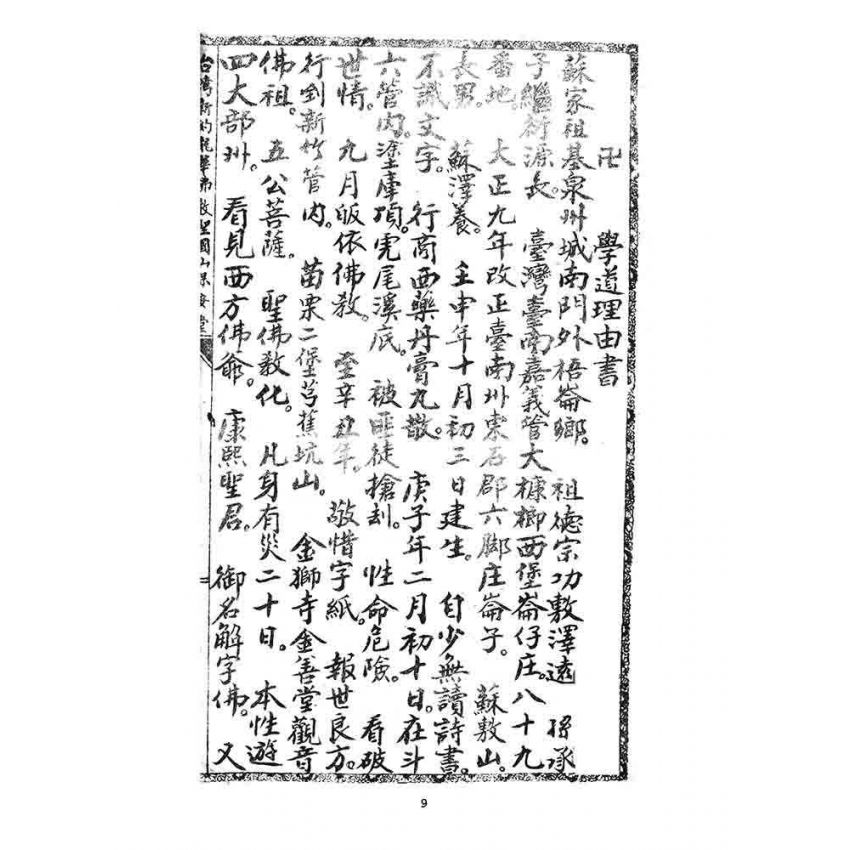 卍 學道理由書
蘇家祖基泉州城南門外梧崙鄉。祖德宗功敷澤遠 孫承
子繼衍源長。臺灣臺南嘉義管大槺榔西堡崙仔庄。八十九
番地。大正九年改正臺南州東石郡六腳庄崙子。蘇敷山。
長男。蘇澤養。壬申年十月初三日建生。自少無讀詩書。
不識文字。行商西藥丹膏丸散。庚子年二月初十日。在斗
六管內。塗庫項虎尾溪底。被匪徒搶刦。性命危險。看破
世情。九月皈依佛教。至辛丑年。敬惜字紙。報世良方。
行到新竹管內。苗栗二堡芎蕉坑山。金獅寺金善堂觀音
佛祖。五公菩薩。聖佛教化。凡身有災二十日。本性遊
四大部州。看見西方佛爺。康熙聖君。御名解字佛。又
台灣新約龍華佛教聖國山保安堂 二
9